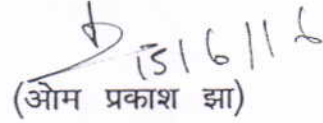 15/6/16
(ओम प्रकाश झा)